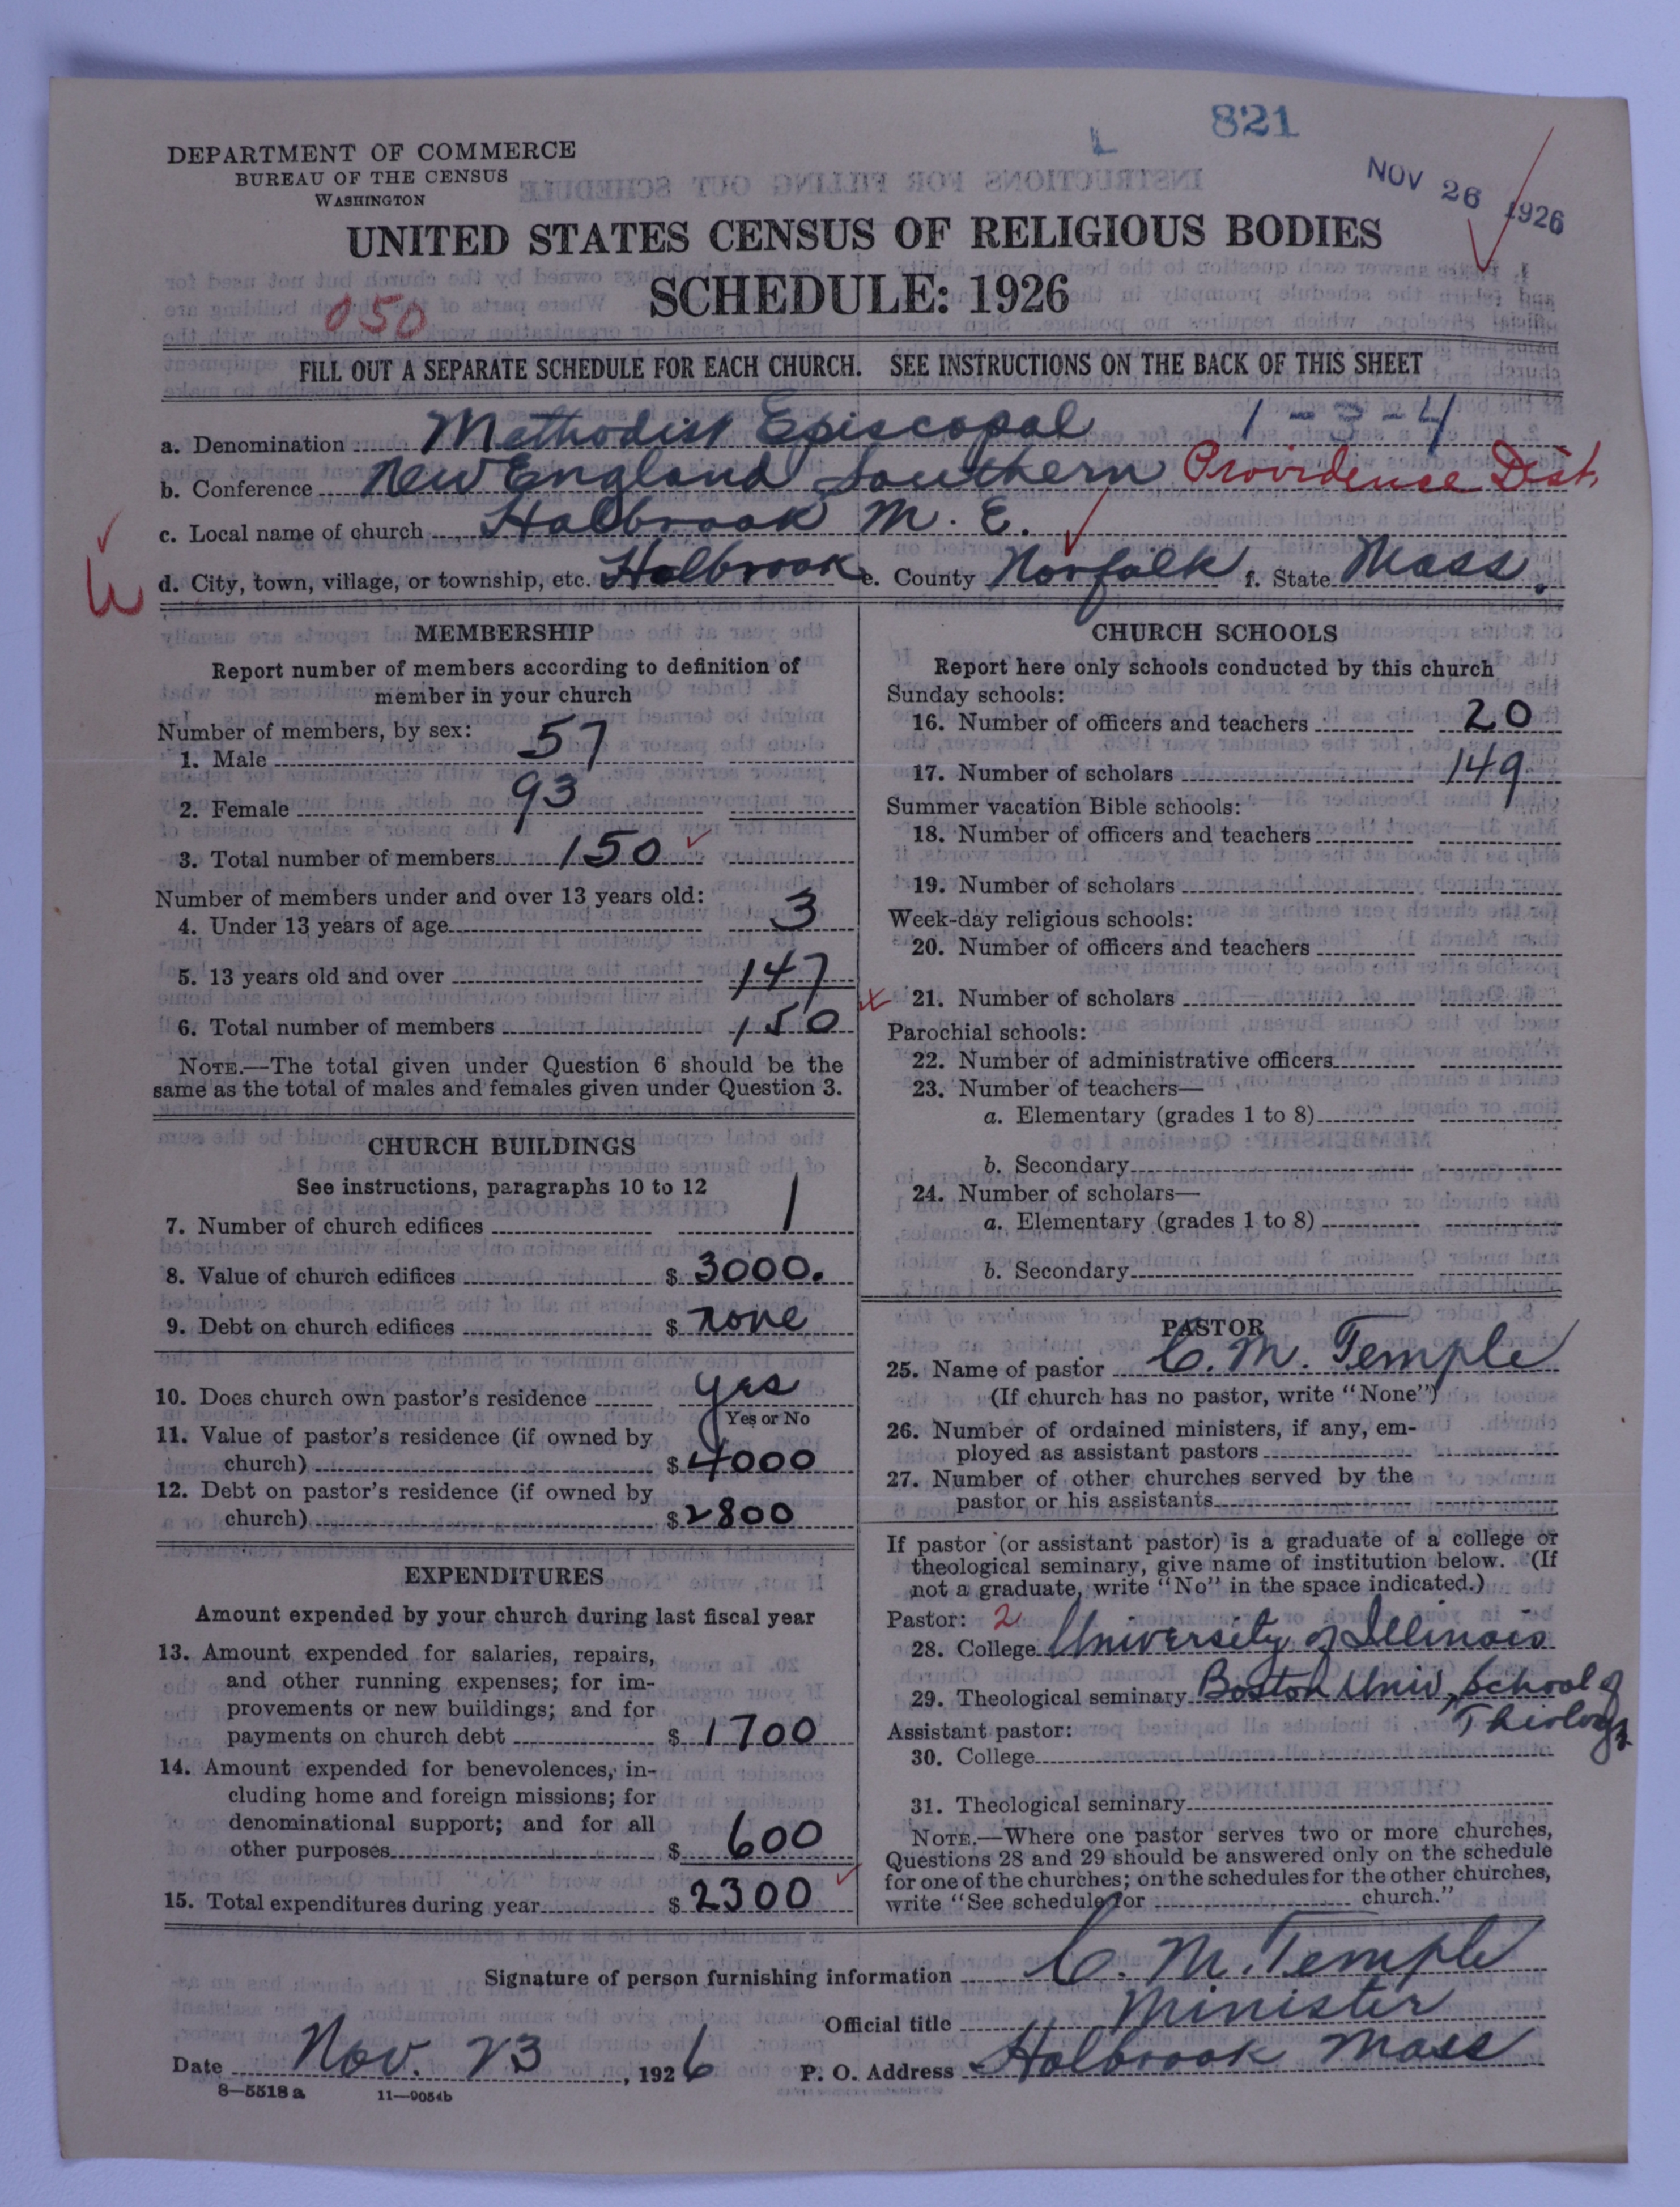 821
L
DEPARTMENT OF COMMERCE
BUREAU OF THE CENSUS
WASHINGTON
NOV 26 1926
UNITED STATES CENSUS OF RELIGIOUS BODIES
SCHEDULE: 1926
050
FILL OUT A SEPARATE SCHEDULE FOR EACH CHURCH. SEE INSTRUCTIONS ON THE BACK OF THIS SHEET
a. Denomination Methodist Episcopal 1-3-4
b. Conference New England Southern Providence Dist.
c. Local name of church Holbrook M. E.
d. City, town, village, or township, etc. Holbrook e. County Norfolk f. State Mass.
MEMBERSHIP
Report number of members according to definition of
member in your church
Number of members, by sex:
1. Male 57
2. Female 93
3. Total number of members 150
Number of members under and over 13 years old:
4. Under 13 years of age 3
5. 13 years old and over 147
6. Total number of members 150
NOTE.—The total given under Question 6 should be the
same as the total of males and females given under Question 3.
CHURCH BUILDINGS
See instructions, paragraphs 10 to 12
7. Number of church edifices 1
8. Value of church edifices $ 3000.
9. Debt on church edifices $ none
10. Does church own pastor's residence yes
Yes or No
11. Value of pastor's residence (if owned by
church) $ 4000
12. Debt on pastor's residence (if owned by
church) $ 2800
EXPENDITURES
Amount expended by your church during last fiscal year
13. Amount expended for salaries, repairs,
and other running expenses; for im-
provements or new buildings; and for
payments on church debt $ 1700
14. Amount expended for benevolences, in-
cluding home and foreign missions; for
denominational support; and for all
other purposes $ 600
15. Total expenditures during year $ 2300
CHURCH SCHOOLS
Report here only schools conducted by this church
Sunday schools:
16. Number of officers and teachers 20
17. Number of scholars 149
Summer vacation Bible schools:
18. Number of officers and teachers
19. Number of scholars
Week-day religious schools:
20. Number of officers and teachers
21. Number of scholars
Parochial schools:
22. Number of administrative officers
23. Number of teachers—
a. Elementary (grades 1 to 8)
b. Secondary
24. Number of scholars—
a. Elementary (grades 1 to 8)
b. Secondary
PASTOR
25. Name of pastor C. M. Temple
(If church has no pastor, write "None")
26. Number of ordained ministers, if any, em-
ployed as assistant pastors
27. Number of other churches served by the
pastor or his assistants
If pastor (or assistant pastor) is a graduate of a college or
theological seminary, give name of institution below. (If
not a graduate, write "No" in the space indicated.)
Pastor: 2
28. College University of Illinois
29. Theological seminary Boston Univ. School of
Theology
Assistant pastor:
30. College
31. Theological seminary
NOTE.—Where one pastor serves two or more churches,
Questions 28 and 29 should be answered only on the schedule
for one of the churches; on the schedules for the other churches,
write "See schedule for church."
Signature of person furnishing information C. M. Temple
Official title Minister
Date Nov. 23, 1926 P. O. Address Holbrook Mass
8—5518 a 11—9054b